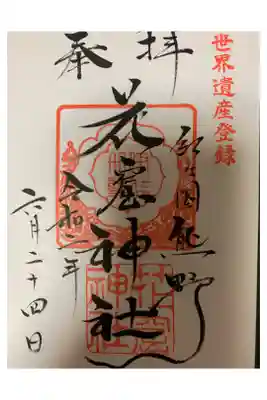 世界遺産登録
奉拝
熊野
花窟神社
令和二年
六月二十四日
花窟神社